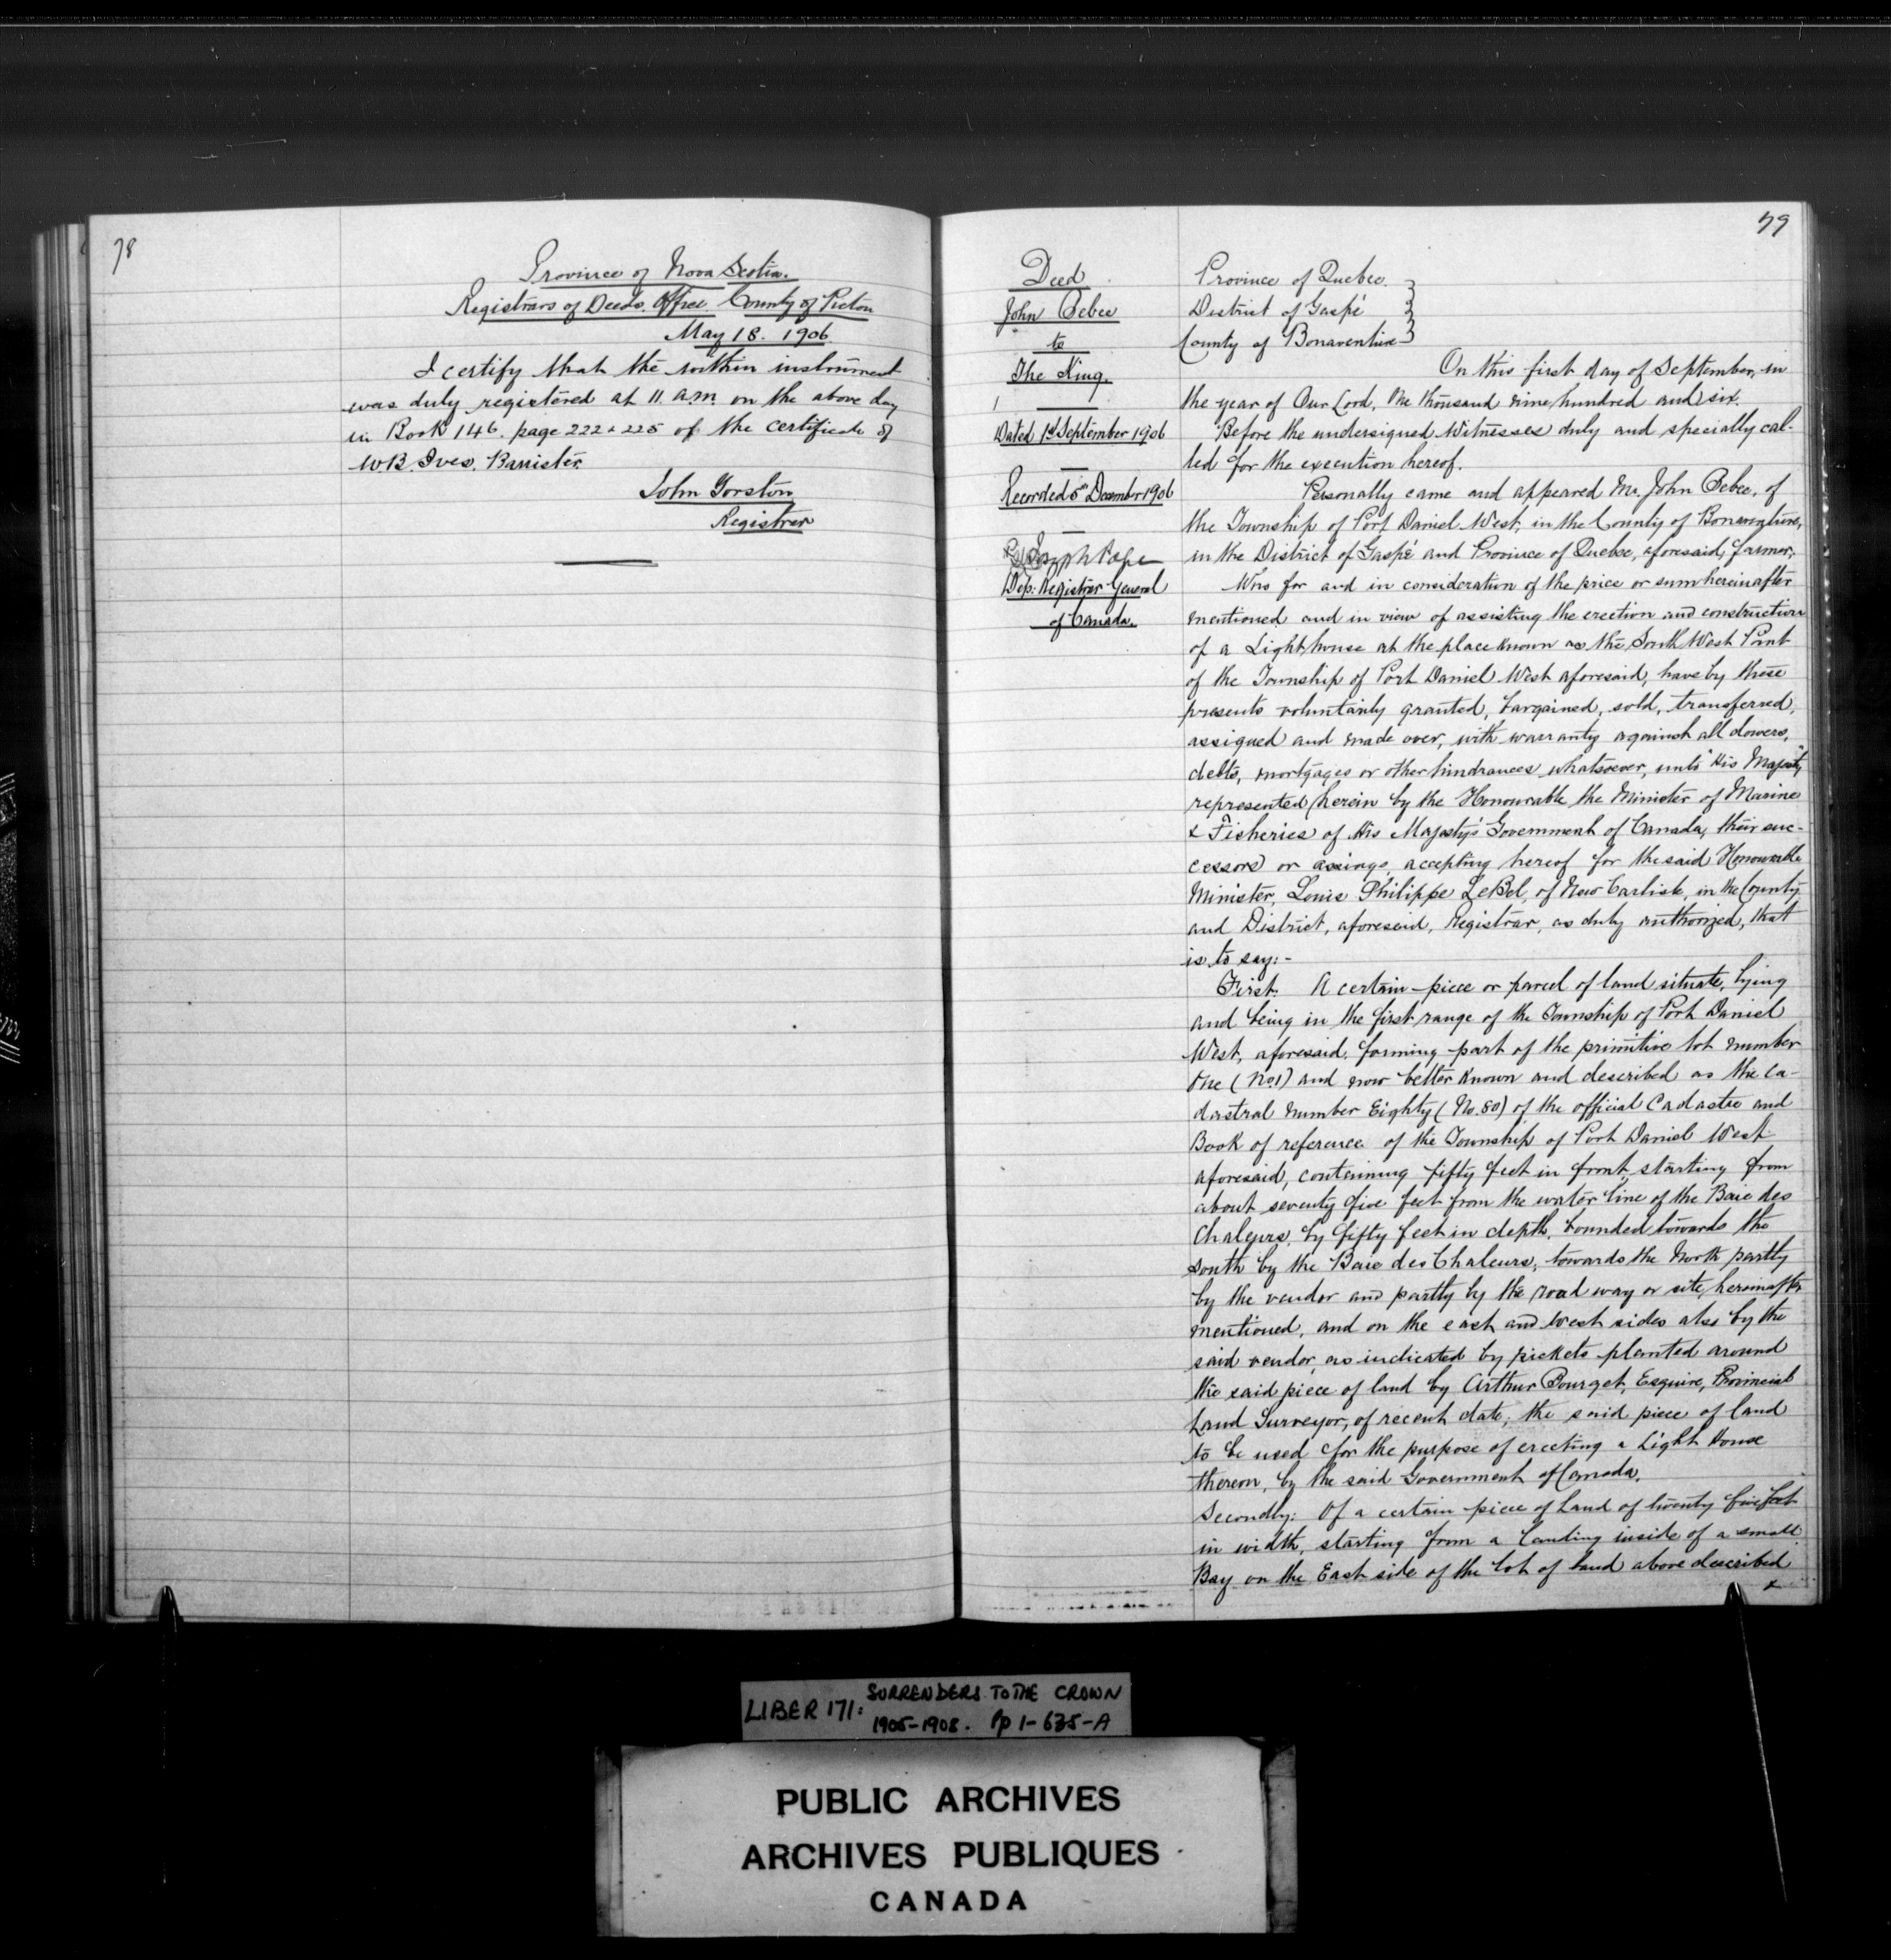 78
Province of Nova Scotia.
Registrars of Deeds Office. County of Pictou
May 18. 1906
I certify that the within instrument
was duly registered at 11. a.m. on the above day
in Book 146. page 222 & 225 of the certificate of
W.B. Ives. Barrister
John
Registrar
79
Deed
John
to
The King.
Dated 1st September 1906
Recorded 5th December 1906
Joseph Pope
Dep: Registrar General
of Canada.
Province of Quebec.
District of Gaspé
County of Bonaventure
On this first day of September, in
the year of Our Lord, One thousand nine hundred and six.
Before the undersigned Witnesses duly and specially cal-
led for the execution hereof.
Personally came and appeared Mr. John of
the Township of Port Daniel West, in the County of Bonaventure,
in the District of Gaspé and Province of Quebec, aforesaid, farmer;
Who for and in consideration of the price or sum hereinafter
mentioned and in view of assisting the erection and construction
of a Light house at the place known as the South West Point
of the Township of Port Daniel West aforesaid, have by these
presents voluntarily granted, bargained, sold, transferred,
assigned and made over, with warranty against all dowers,
debts, mortgages or other hindrances whatsoever, unto "His Majesty"
represented herein by the Honourable the Minister of Marine
& Fisheries of His Majesty's Government of Canada, their suc-
cessors or assings, accepting hereof for the said Honourable
Minister, Louis Philippe LeBel, of New Carlisle, in the County
and District, aforesaid, Registrar, as duly authorized, that
is to say:-
First: A certain piece or parcel of land situate, lying
and being in the first range of the Township of Port Daniel
West, aforesaid, forming part of the primitive lot number
One (No.1) and now better known and described as the ca-
dastral number Eighty (No. 80) of the official Cadastre and
Book of reference of the Township of Port Daniel West
aforesaid, containing fifty feet in front, starting from
about seventy five feet from the water line of the Baie des
Chaleurs, by fifty feet in depth, bounded towards the
South by the Baie des Chaleurs, towards the North partly
by the vendor and partly by the road way or site, hereinafter
mentioned, and on the east and west sides also by the
said vendor, as indicated by pickets planted around
the said piece of land by Arthur Bourget, Esquire, Provincial
Land Surveyor, of recent date, the said piece of land
to be used for the purpose of erecting a Light House
thereon, by the said Government of Canada.
Secondly: Of a certain piece of Land of twenty five feet
in width, starting from a landing inside of a small
Bay on the East side of the lot of land above described
LIBER 171: SURRENDERS TO THE CROWN
1905-1908. Pp 1-635-A
PUBLIC ARCHIVES
ARCHIVES PUBLIQUES
CANADA